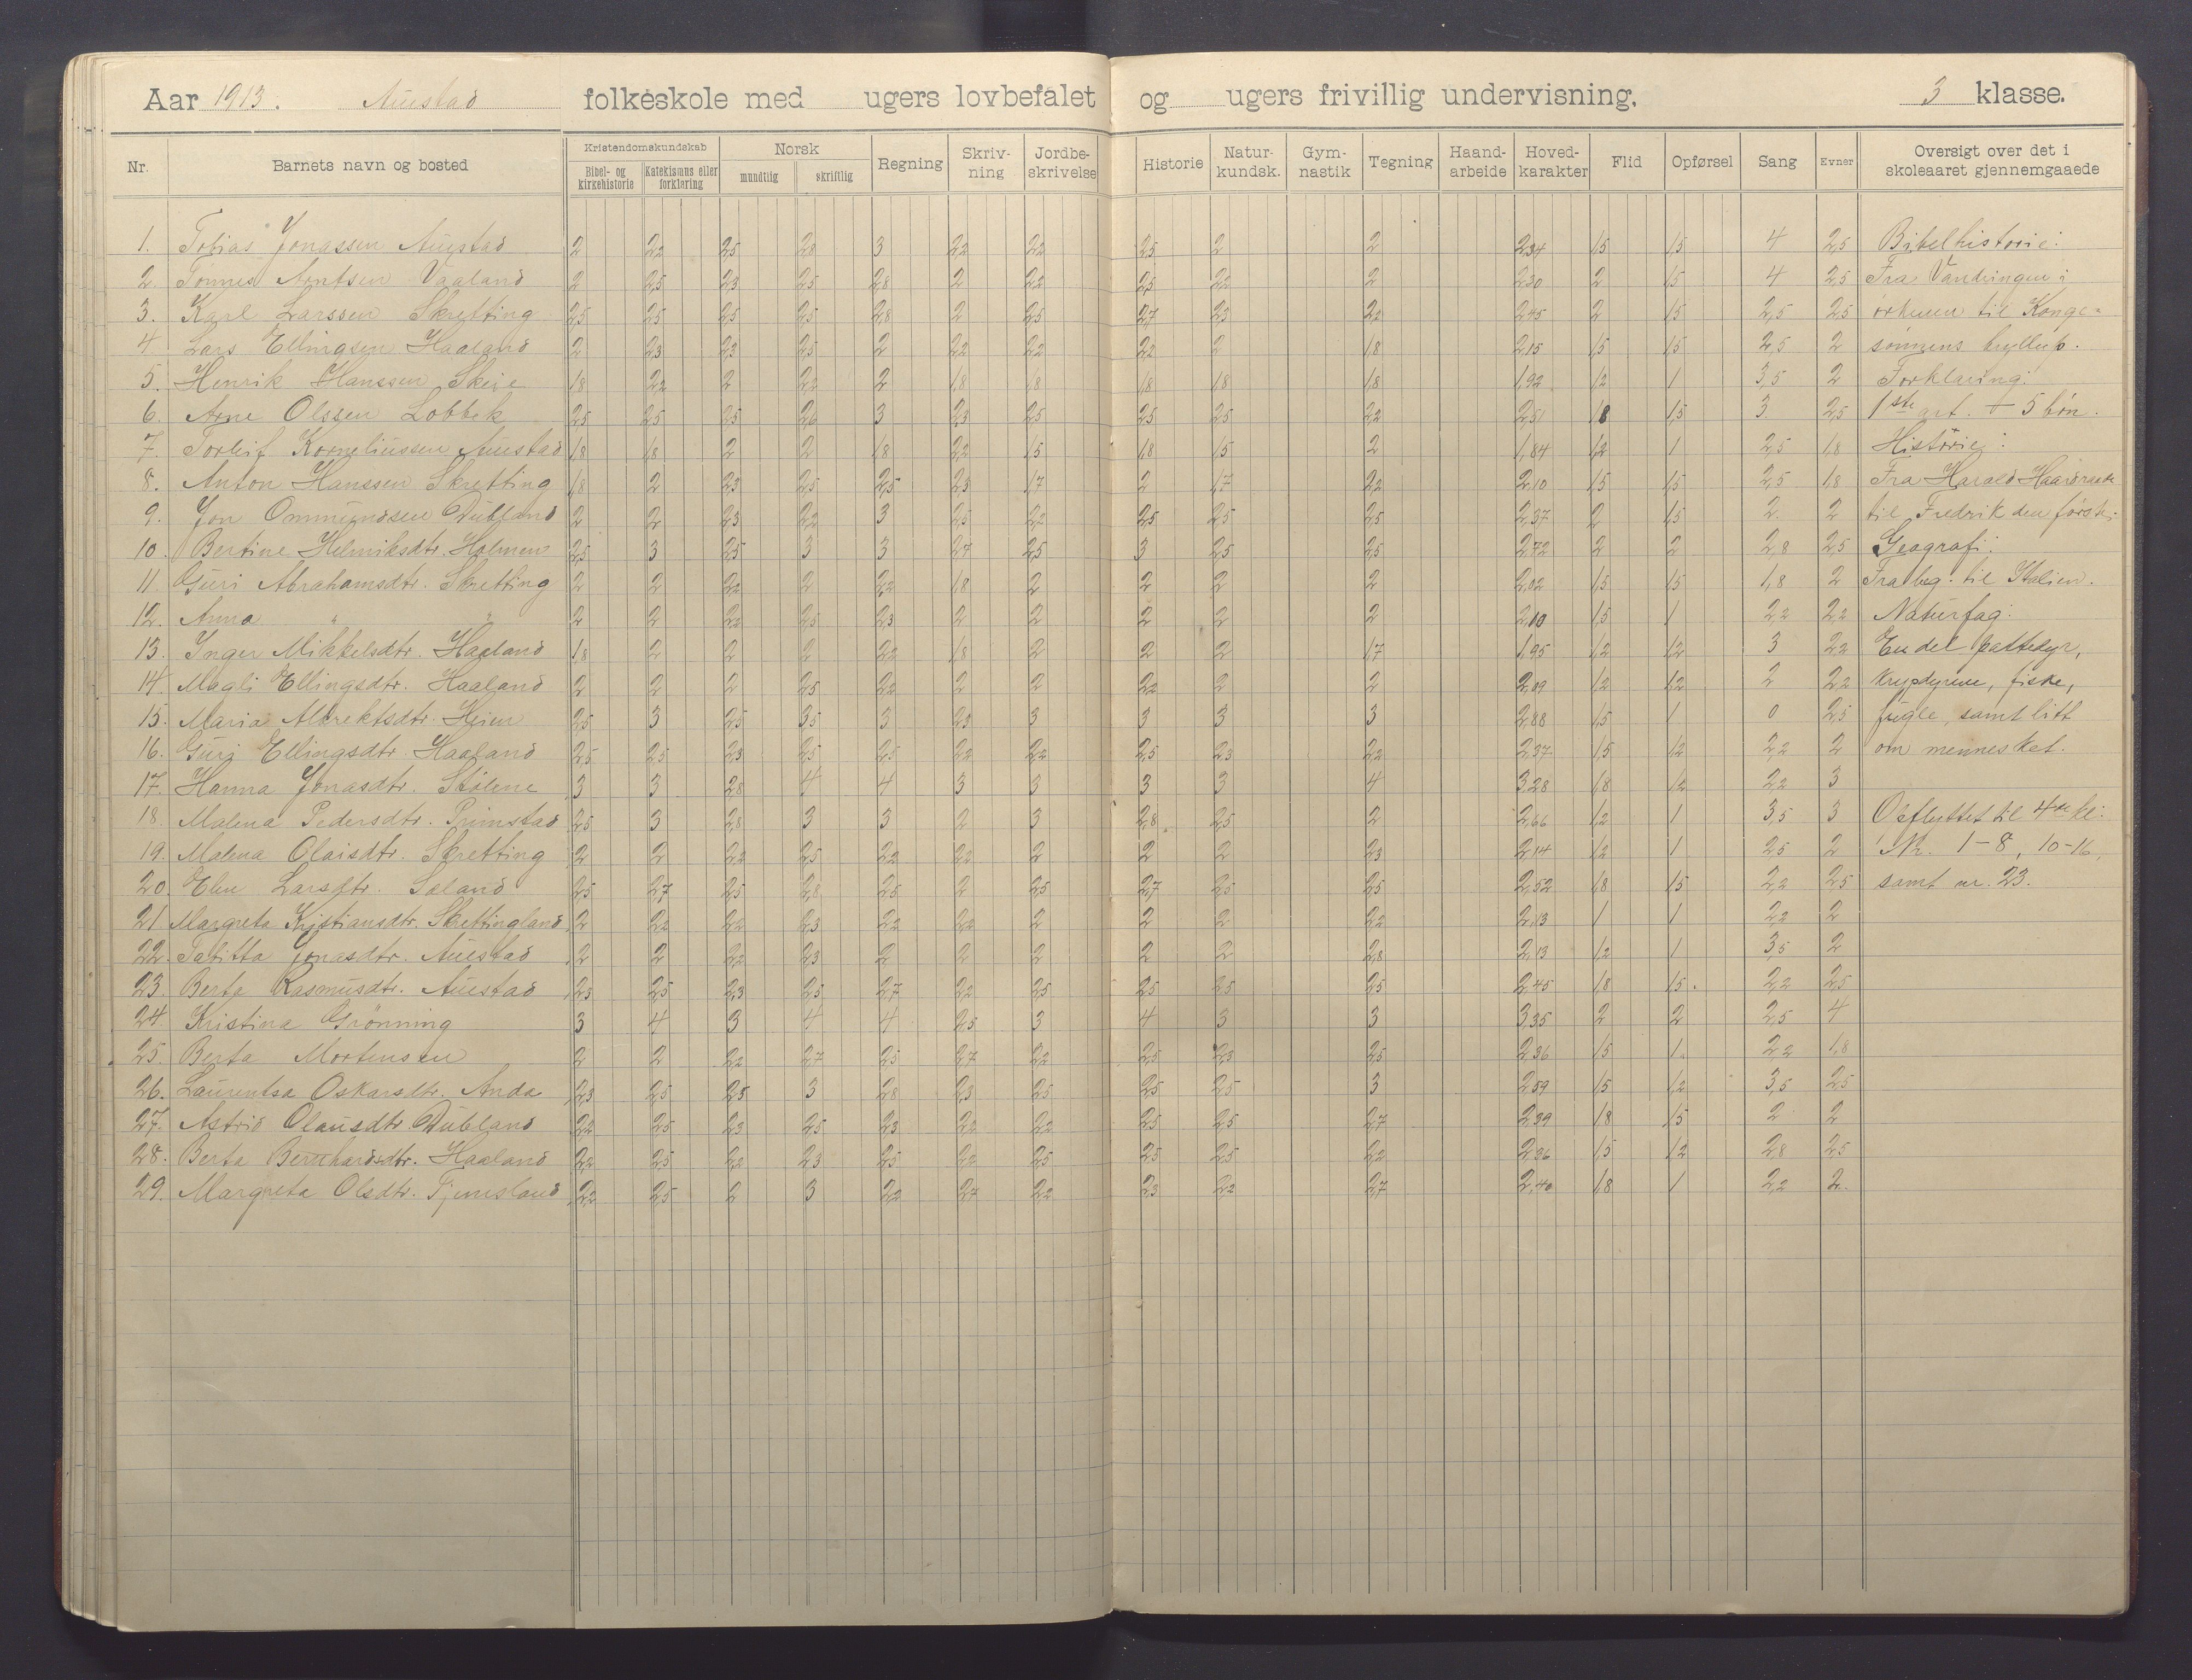 Aar 1913. Austad folkeskole med ugers lovbefalet og ugers frivillig undervisning. 3 klasse.
Nr. Barnets navn og bosted Kristendomskundskab Bibel- og kirkehistorie Katekismus eller forklaring Norsk mundtlig skriftlig Regning Skriv-ning Jordbe-skrivelse Historie Natur-kundsk. Gym-nastik Tegning Haand-arbeide Hoved-karakter Flid Opførsel Sang Evner Oversigt over det i skoleaaret gjennemgaaede
1. Tobias Jonassen Austad 2 2,2 2,5 2,8 3 2,2 2,2 2,5 2 2 2,34 1,5 1,5 4 2,5 Bibelhistorie:
2. Tønnes Arntsen Vaaland 2 2,5 2,3 2,5 2,8 2 2,2 2,5 2,2 2 2,30 2 1,5 4 2,5 Fra Vandringen i
3. Karl Larssen Skretting 2,5 2,5 2,5 2,5 2,8 2 2,5 2,7 2,3 2,2 2,45 2 1,5 2,5 2,5 ørkenen til Konge-
4. Lars Ellingsen Haaland 2 2,3 2,3 2,5 2 2,2 2,2 2,2 2 1,8 2,15 1,5 1,5 2,5 2 sønnens bryllup.
5. Henrik Hanssen Skeie 1,8 2,2 2 2,2 2 1,8 1,8 1,8 1,8 1,8 1,92 1,2 1 3,5 2 Forklaring:
6. Arne Olssen Lobbek 2,5 2,5 2,5 2,6 3 2,3 2,5 2,5 2,5 2,2 2,51 1,8 1,5 3 2,5 1ste art. + 5 bøn.
7. Torleif Korneliussen Austad 1,8 1,8 2 2 1,8 2,2 1,5 1,8 1,5 2 1,84 1,2 1 2,5 1,8 Historie:
8. Anton Hanssen Skretting 1,8 2 2,3 2,5 2,5 2,3 1,7 2 1,7 2,2 2,10 1,5 1,5 2,5 1,8 Fra Harald Haardraade
9. Jon Ommundsen Dubland 2 2 2,3 2,2 3 2,5 2,2 2,5 2,5 2,5 2,37 2 1,5 2 2 til Fredrik den første.
10. Bertine Helmiksdtr. Holmen 2,5 3 2,5 3 3 2,7 2,5 3 2,5 2,5 2,72 2 2 2,8 2,5 Geografi:
11. Guri Abrahamsdtr. Skretting 2 2 2,2 2 2,2 1,8 2 2 2 2 2,02 1,5 1,5 1,8 2 Fra beg. til Italien.
12. Anna " " 2 2 2,2 2,5 2,3 2 2 2 2 2 2,10 1,5 1 2,2 2,2 Naturfag:
13. Inger Mikkelsdtr. Haaland 1,8 2 2 2 2,2 1,8 2 2 2 1,7 1,95 1,2 1,2 3 2,2 En del pattedyr,
14. Magli Ellingsdtr. Haaland 2 2 2 2,5 2,2 2 2 2,2 2 2 2,09 1,2 1,2 2 2,2 krypdyrene, fiske,
15. Maria Albrektsdtr. Heien 2,5 3 2,5 3,5 3 2,3 3 3 3 3 2,88 1,5 1 0 2,5 fugle, samt litt
16. Guri Ellingsdtr. Haaland 2,5 2,5 2,3 2,5 2,5 2,2 2,2 2,5 2,3 2,2 2,37 1,5 1,2 2,2 2 om mennesket.
17. Hanna Jonasdtr. Stølene 3 3 2,8 4 4 3 3 3 3 4 3,28 1,8 1,2 2,2 3
18. Malena Pedersdtr. Primstad 2,5 3 2,8 3 3 2 3 2,8 2,5 2 2,66 1,2 1 3,5 3 Opflyttet til 4de kl:
19. Malena Olaisdtr. Skretting 2 2 2,2 2,5 2,2 2,2 2 2 2 2,3 2,14 1,2 1 2,5 2 Nr. 1-8, 10-16,
20. Elen Larsdtr. Sæland 2,5 2,7 2,5 2,8 2,5 2 2,5 2,7 2,5 2,5 2,52 1,8 1,5 2,2 2,5 samt nr. 23.
21 Margreta Kristiansdtr. Skettingland 2 2,2 2,2 2,3 2,2 2,2 2 2 2 2,2 2,13 1 1 2,2 2
22. Tabitta Jonasdtr. Austad 2 2 2,2 2,3 2 2 2 2 2 2,8 2,13 1,2 1 3,5 2
23. Berta Rasmusdtr. Austad 2,3 2,5 2,3 2,5 2,7 2,2 2,5 2,5 2,5 2,5 2,45 1,8 1,5. 2,2 2,5
24 Kristina Grønning 3 4 3 4 4 2,5 3 4 3 3 3,35 2 2 2,5 4
25. Berta Mortensen 2 2 2,2 2,7 2,5 2,7 2,2 2,5 2,3 2,5 2,36 1,5 1. 2,2 1,8
26. Laurentsa Oskarsdtr. Anda 2,3 2,5 2,5 3 2,8 2,3 2,5 2,5 2,5 3 2,59 1,5 1,2 3,5 2,5
27. Astrid Olausdtr. Dubland 2,2 2,5 2,3 2,5 2,3 2,2 2,2 2,5 2,5 2,7 2,39 1,8 1,5 2 2
28. Berta Bernhardsdtr. Haaland 2,2 2,5 2,2 2,3 2,5 2,2 2,5 2,5 2,5 2,2 2,36 1,5 1,2 2,8 2,5
29. Margreta Olsdtr. Tjemsland 2,2 2,5 2 3 2,2 2,7 2,2 2,3 2,2 2,7 2,40 1,8 1 2,2 2.